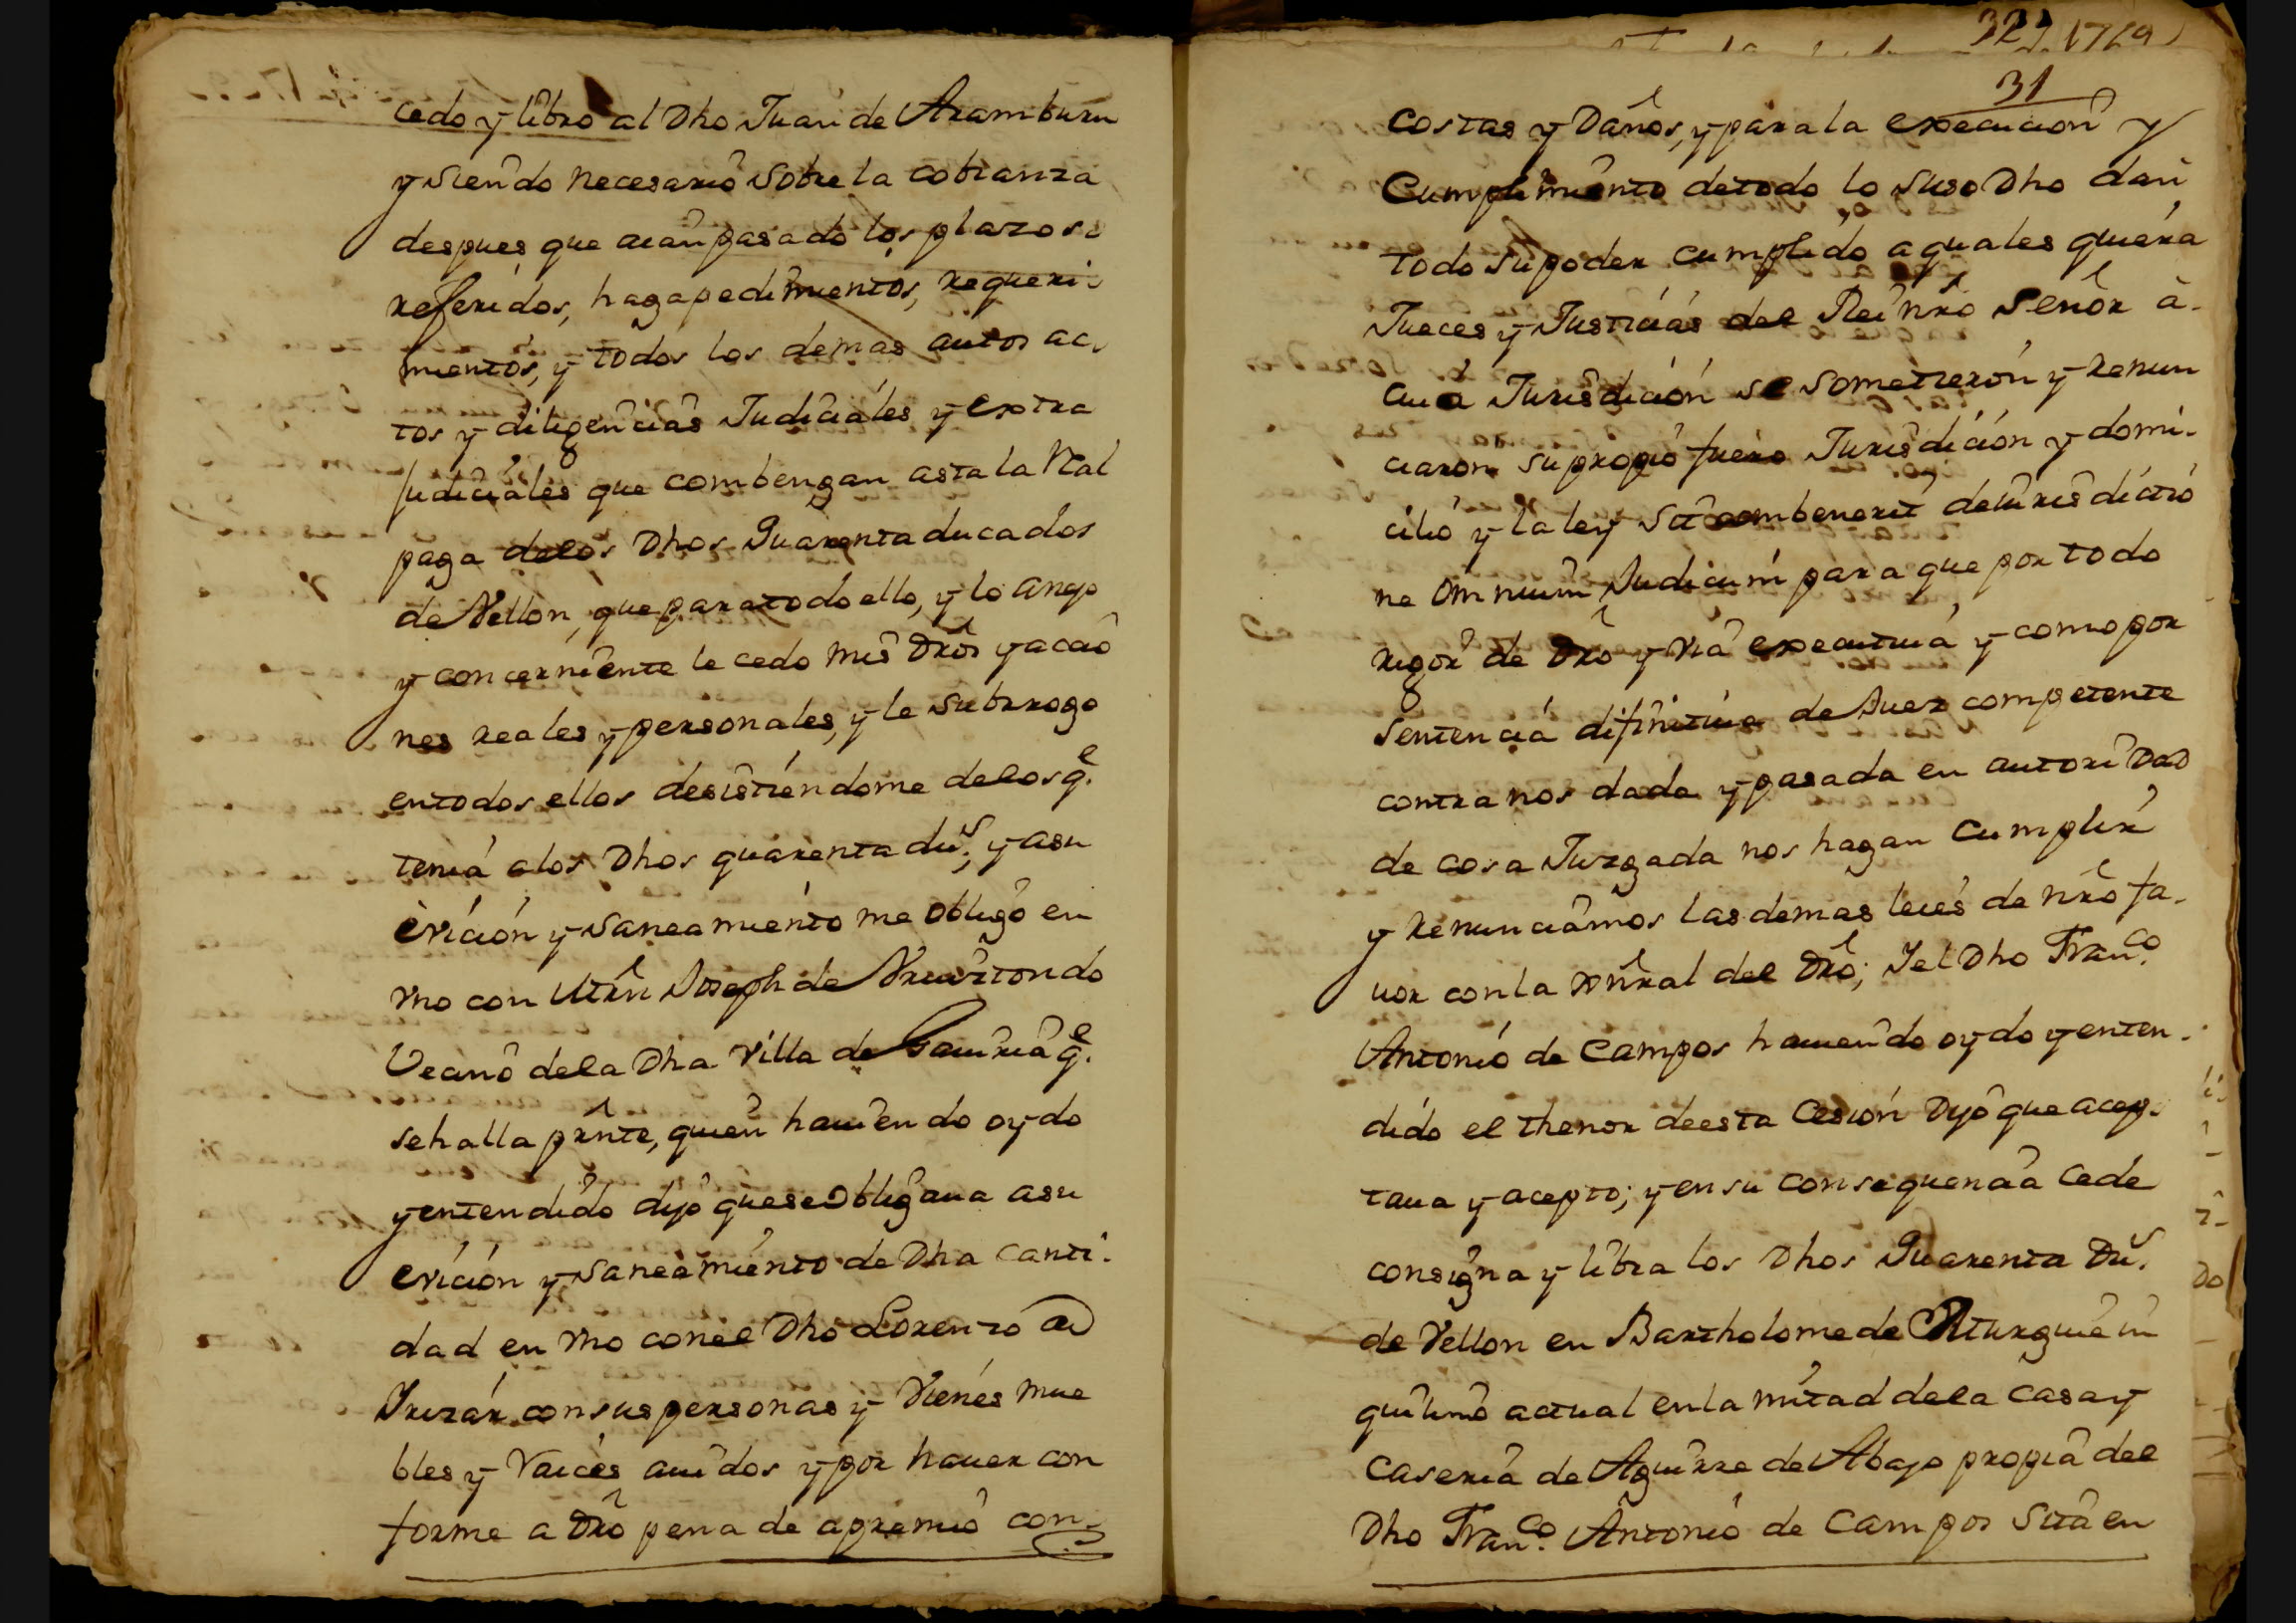 cedo y libro al Dho Juan de Aramburu
y siendo necesario sobre la cobranza
despues que aian pasado los plazos
referidos, haga pedimientos, requeri
mientos, y todos los demas autos ac
tos y diligencias Judiciales y extra
judiciales que combengan asta la Ral
paga delos Dhos Quarenta ducados
de Vellon, que para todo ello, y lo anejo
y concerniente le cedo mis Dros y accio
nes reales y personales, y le subrrogo
en todos ellos desistiendome delos q.e
tenia a los Dhos quarenta dus, y a su
evicion y saneamiento me obligo en
vno con Utrn Joseph de
Vecino dela Dha Villa de Gauiria q.e
se halla prnte, quien hauiendo oydo
y entendido dijo que se obligaua a su
evicion y saneamiento de Dha canti-
dad en vno con el Dho Lorenzo de
Irizar con sus personas y Vienes mue
bles y Raices auidos y por hauer con
forme a Dro pena de apremio con
329 1769
31
costas y Daños, y para la execucion y
Cumplimiento de todo lo suso Dho dan
todo su poder cumplido a quales quiera
Jueces y Justicias del Rei nro Señor a
cuia Jurisdicion se sometieron y renun
ciaron su propio fuero Jurisdicion y domi-
cilio y la ley Sit combenerit de iurisdictio
ne omnium Judicum para que por todo
rigor de Dro y via executiua y como por
Sentencia difinitiua de Juez competente
contra nos dada y pasada en autoridad
de cosa Juzgada nos hagan cumplir
y renunciamos las demas leies de nro fa-
uor con la gnral del Dro; Y el Dho Fran.co
Antonio de Campos hauiendo oydo y enten-
dido el thenor de esta Cesion Dijo que acep-
taua y acepto; y en su consequencia Cede
consigna y libra los Dhos Quarenta Dus.
de Vellon en Bartholome de Iturguie in
quilino actual en la mitad dela casa y
caseria de Aguirre de Abajo propia del
Dho Fran.co Antonio de Campos Sita en